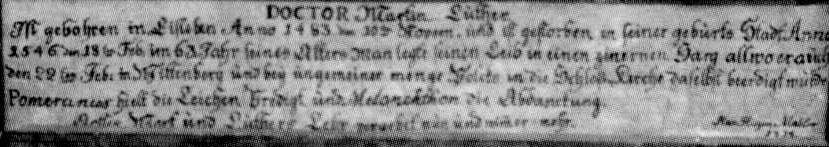 DOCTOR Martin Luther
Ist gebohren in Eisleben Anno 1483 den 10ten Novem. und ist gestorben in seiner geburts Stadt Anno
1546 den 18ten Feb. im 63 Jahr seines Alters Man legte seinen Leib in einen zinernen Sarg allwo er auch
den 22ten Feb. in Wittenberg und bey ungemeiner menge Volcks in die Schloß Kirche daselbst beerdigt wurde
Pomeranus hielt die Leichen Predigt und Melanchthon die Abdanckung.
Gottes Wort und Luthers Lehr vergehet nun und nimer mehr.